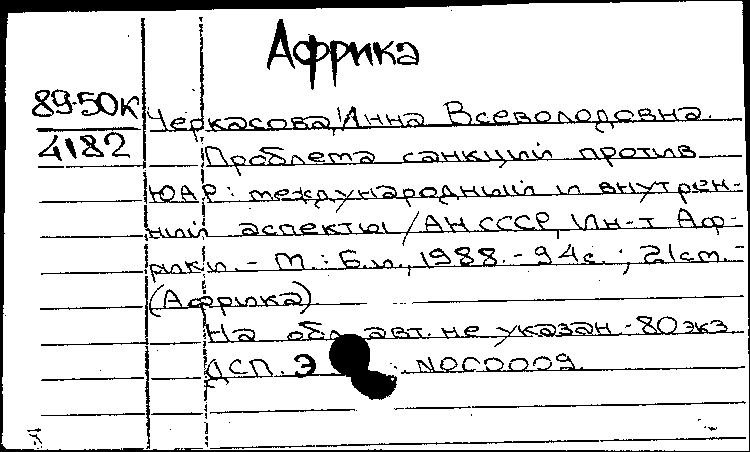 Африка
89-50к
4182
Черкасова, Инна Всеволодовна.
Проблема санкций против
ЮАР: международный и внутрен-
ний аспекты / АН СССР, Ин-т Аф-
рики. - М.: Б.и., 1988. - 94с.; 21см. -
(Африка)
На обл. авт. не указан. - 80 экз
ДСП. Э : N000009.